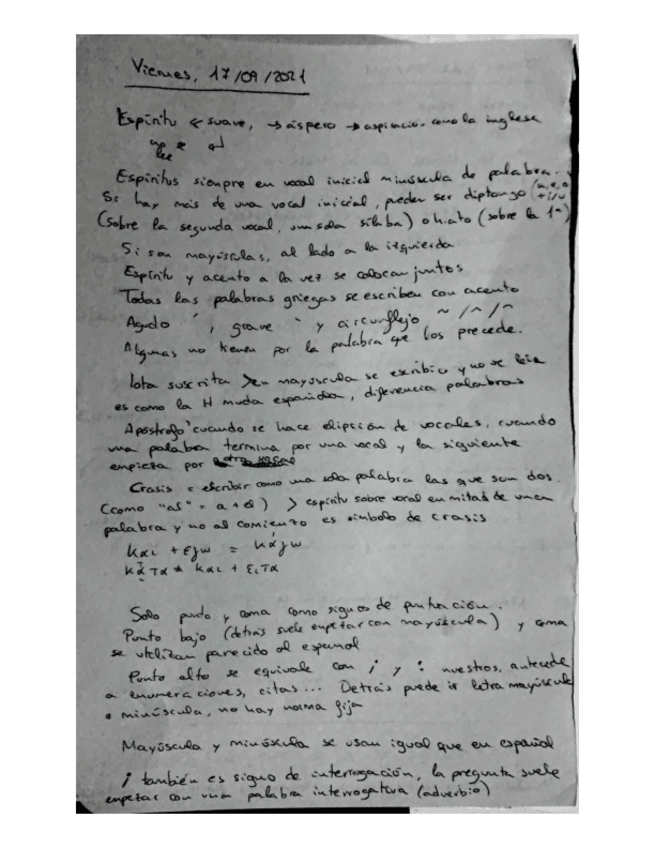 Viernes, 17/09/2021
Espíritu < suave, → áspero → aspiración como la inglesa
Espíritus siempre en vocal inicial minúscula de palabra.
Si hay más de una vocal inicial, pueden ser diptongo (a, e, o + i/u)
(sobre la segunda vocal, una sola sílaba) o hiato (sobre la 1ª)
Si son mayúsculas, al lado a la izquierda
Espíritu y acento a la vez se colocan juntos
Todas las palabras griegas se escriben con acento
Agudo ´, grave ` y circunflejo ~ / ^ / ^
Algunas no tienen por la palabra que los precede.
Iota suscrita > en mayúscula se escribía y no se leía
es como la H muda española, diferencia palabras
Apóstrofo ' cuando se hace elipsión de vocales, cuando
una palabra termina por una vocal y la siguiente
empieza por
Crasis = escribir como una sola palabra las que son dos.
(como "al" = a + el) > espíritu sobre vocal en mitad de una
palabra y no al comienzo es símbolo de crasis
και + εγω = κἀγω
κᾆτα = και + ειτα
Solo punto y coma como signos de puntuación.
Punto bajo (detrás suele empezar con mayúscula) y coma
se utilizan parecido al español
Punto alto se equivale con ; y : nuestros, antecede
a enumeraciones, citas... Detrás puede ir letra mayúscula
o minúscula, no hay norma fija
Mayúscula y minúscula se usan igual que en español
; también es signo de interrogación, la pregunta suele
empezar con una palabra interrogativa (adverbio)